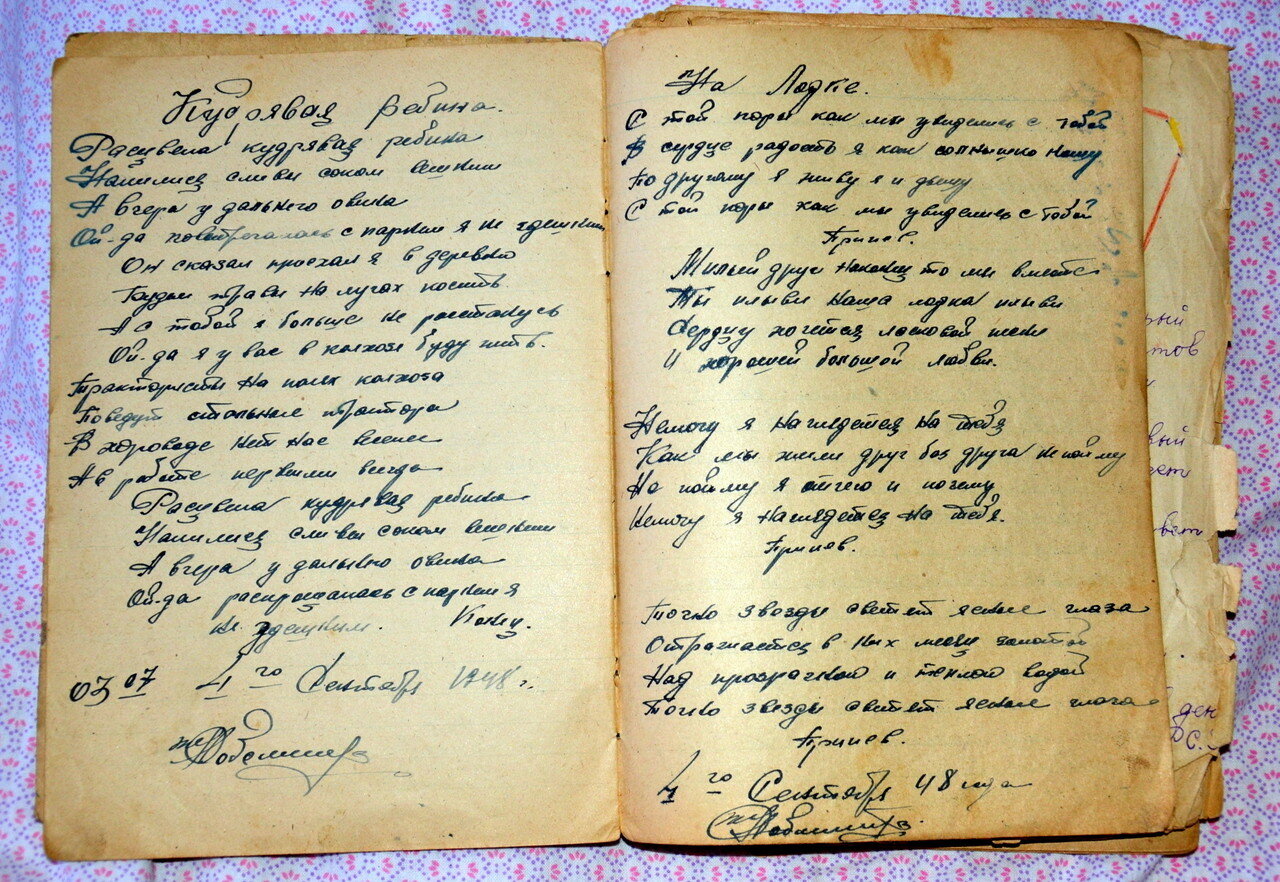 Кудрявая ребина.
Расцвела кудрявая ребина
Налились сливы соком вешним
А вчера у дальнего овина
Ой-да повстречалась с парнем я не здешним
Он сказал приехал я в деревню
Будем травы на лугах косить
А с тобой я больше не расстанусь
Ой-да я у вас в колхозе буду жить.
Трактористы на полях колхоза
Поведут стальные трактора
В хороводе нет нас веселее
А в работе первыми всегда
Расцвела кудрявая ребина
Налились сливы соком вешним
А вчера у дальнего овина
Ой-да распрощалась с парнем я
не здешним. Конец.
03 07 4 го Сентября 1948 г.
На Лодке.
С той поры как мы увиделись с тобой
В сердце радость я как солнышко ношу
По другому я живу я и дышу
С той поры как мы увиделись с тобой
Припев.
Милый друг наконец то мы вместе
Ты плыви наша лодка плыви
Сердцу хочется ласковой песни
И хорошей большой любви.
Немогу я наглядется на тебя
Как мы жили друг без друга не пойму
Не пойму я отчего и почему
Немогу я наглядется на тебя.
Припев.
Точно звезды светет ясные глаза
Отражается в них месяц золотой
Над прозрачной и теплой водой
Точно звезды светет ясные глаза
Припев.
4 го Сентября 48 года
рый
тов
вый
ет
вет
ден
С.